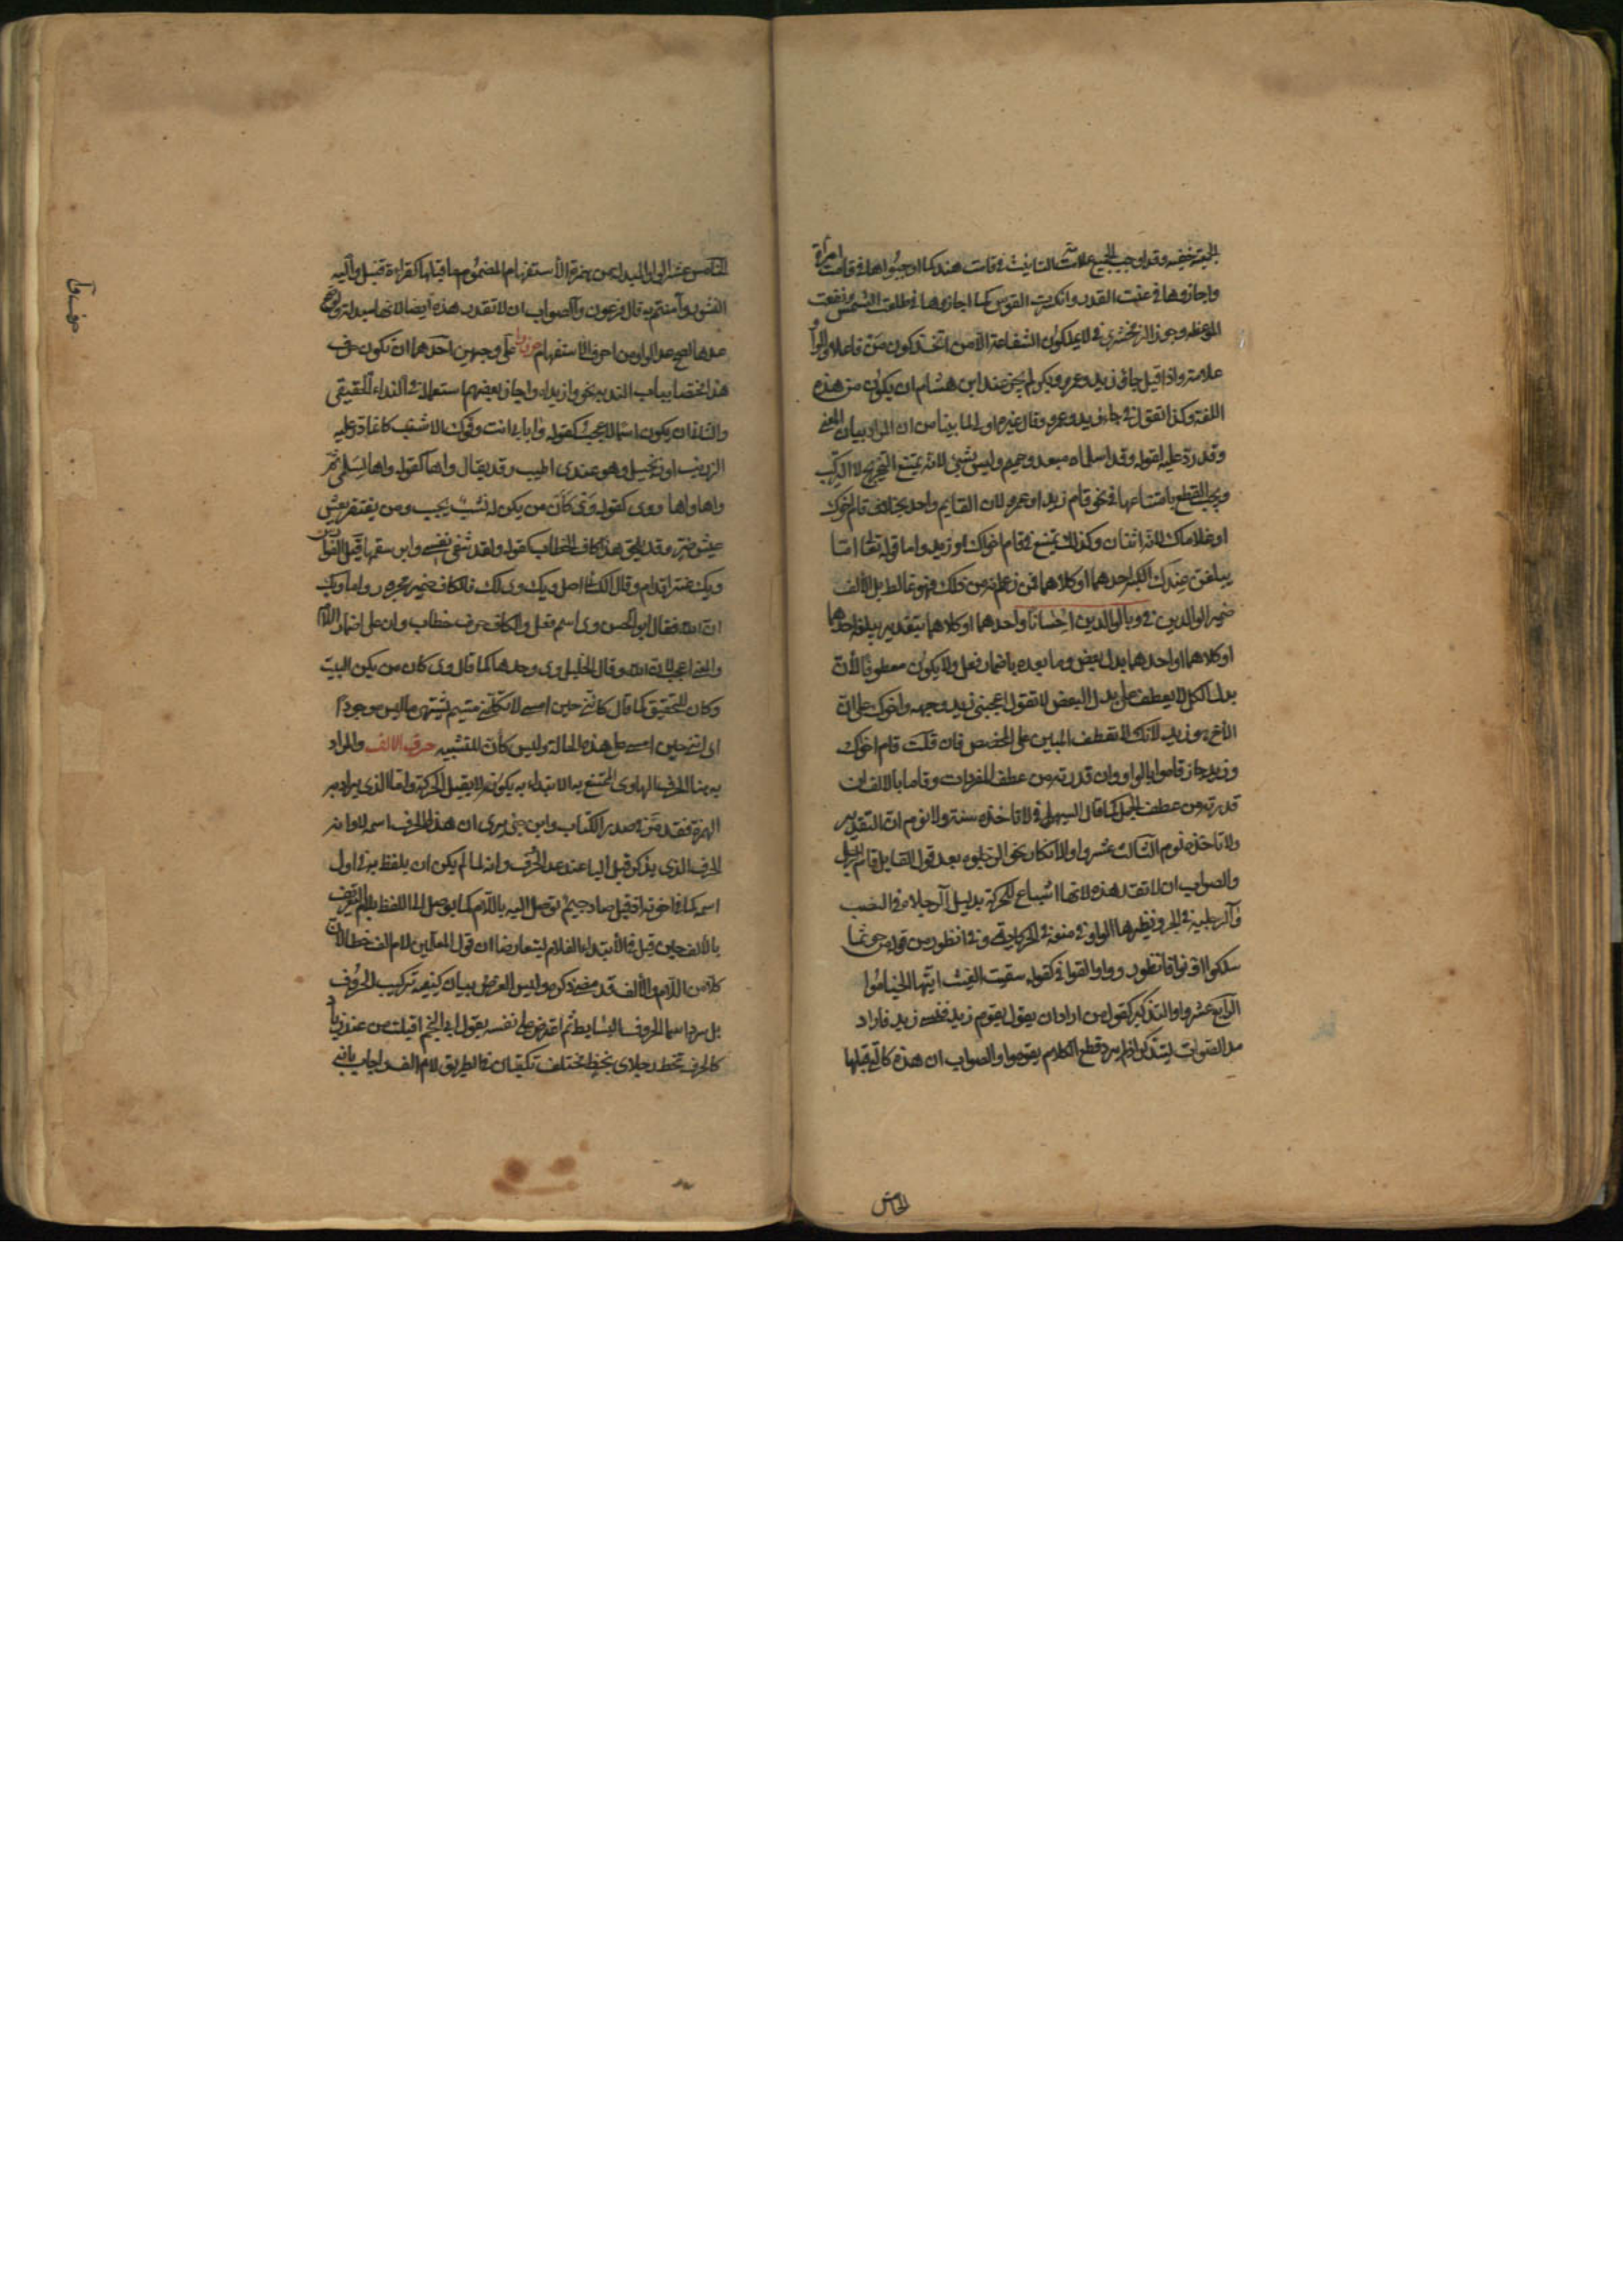 الحقيقة خفيه وقد اوجب الجميع علامة التانيث في قامت هند كما اوجبوا هما في قامت امراة
واجازوها في غلت القدر وانكسرت القوس كما اجازوها في طلعت الشمس ونفعت
الموعظة وجوز الزمخشري في لا يملكون الشفاعة الا من اتخذ كون من فاعلا والواو
علامة واذا قيل جاؤ زيد وعمرو وبكر لم يجز عند ابن هشام ان يكون من هذه
اللغة وكذا تقول في جاء زيد وعمرو وقال غيره اولى لما بينا من ان المراد بيان المعنى
وقد رد عليه لقوله وقد اسلماه مبعد وحميم وليس بشئ لانه يمتنع التخريج لا التركيب
ويجب القطع بامتناعها في نحو قام زيد او عمرو لان القايم واحد بخلاف قام اخوك
او غلاماك لانه اثنان وكذلك تمتنع في قام اخواك او زيد واما قوله تعالى اما
يبلغن عندك الكبر احدهما او كلاهما فمن زعم انه من ذلك فهو غالط بل الالف
ضمير الوالدين في وبالوالدين احسانا واحدهما او كلاهما بتقدير يبلغه احدهما
او كلاهما او احدهما بدل بعض وما بعده باضمار فعل ولا يكون معطوفا لان
بدل الكل لا يعطف على بدل البعض لا تقول اعجبني زيد وجهه واخوك على ان
الاخ هو زيد لانك لا تعطف المبين على المخصص فان قلت قام اخواك
وزيد جاز قاموا بالواو ان قدرته من عطف المفردات وقاما بالالف ان
قدرته من عطف الجمل كما قال السهيلي في لا تاخذه سنة ولا نوم ان التقدير
ولا تاخذه نوم الثالث عشر واو الانكار نحو الرجلوه بعد قول القايل قام الرجل
والصواب ان لا تعد هذه لانها اشباع للحركة بدليل آلرجلاه في النصب
وآلرجليه في الجر ونظيرها الواو في منو في الحكاية وفي انظور من قوله من حوثما
سلكوا ادنوا فانظور وواو القوافي كقوله سقيت الغيث ايتها الخيامو
الرابع عشر واو التذكير كقول من اراد ان يقول يقوم زيد فنسي زيد فاراد
مد الصوت ليتذكر اذ لم يرد قطع الكلام يقوموا والصواب ان هذه كالتي قبلها
الخامس
الخامس عشر الواو المبدلة من همزة الاستفهام المضموم ما قبلها كقراءة قنبل واليه
النشور وآمنتم قال فرعون وآمنتم به والصواب ان لا تعد هذه ايضا لانها مبدلة ولو صح
عدها لصح عد الواو من احرف الاستفهام حرف وا على وجهين احدهما ان تكون حرف
نداء مختصا بباب الندبة نحو وا زيداه واجاز بعضهم استعمالها في النداء الحقيقي
والثاني ان يكون اسما لاعجب كقوله وا بابي انت وفوك الاشنب كانما ذر عليه
الزرنب او زنجبيل وهو عندي اطيب وقد يقال واها كقوله واها لسلمى ثم
واها واها ووي كقوله وي كان من يكن له نشب يحبب ومن يفتقر يعش
عيش ضر وقد يلحق هذه كاف الخطاب كقوله ولقد شفى نفسي وابرا سقمها قيل الفوارس
ويك عنتر اقدم وقال الكسائي اصل ويك ويلك فالكاف ضمير مجرور واما ويك
ان الله فقال ابو الحسن وي اسم فعل والكاف حرف خطاب وان على اضمار اللام
والمعنى اعجب لان الله وقال الخليل وي وحدها كما قال وي كان من يكن البيت
وكان للتحقيق كما قال كانني حين امسي لا تكلمني متيم يشتهي ما ليس موجودا
اي انني حين امسي على هذه الحالة وليس كان للتشبيه حرف الالف والمراد
به هنا الحرف الهاوي الممتنع به الابتداء به لكونه لا يقبل الحركة واما الذي يراد به
الهمزة فقد مر في صدر الكتاب وابن جني يرى ان هذا الحرف اسمه لا وانه
الحرف الذي يذكر قبل اليا عند عد الحرف وانه لما لم يكن ان يلفظ به في اول
اسمه كما في اخوته اذ قيل صاد جيم توصل اليه باللام كما توصل الى اللفظ بلام التعريف
بالالف حين قيل في الابتداء الغلام ليتعارضا وان قول المعلمين لام الف خطا لان
كلا من اللام والالف قد مضى ذكره وليس الغرض بيان كيفية تركيب الحروف
بل سرد اسما الحروف البسايط ثم اعترض على نفسه بقول ابي النجم اقبلت من عند زياد
كالخرف تخط رجلاي بخط مختلف تكتبان في الطريق لام الف واجاب بانه